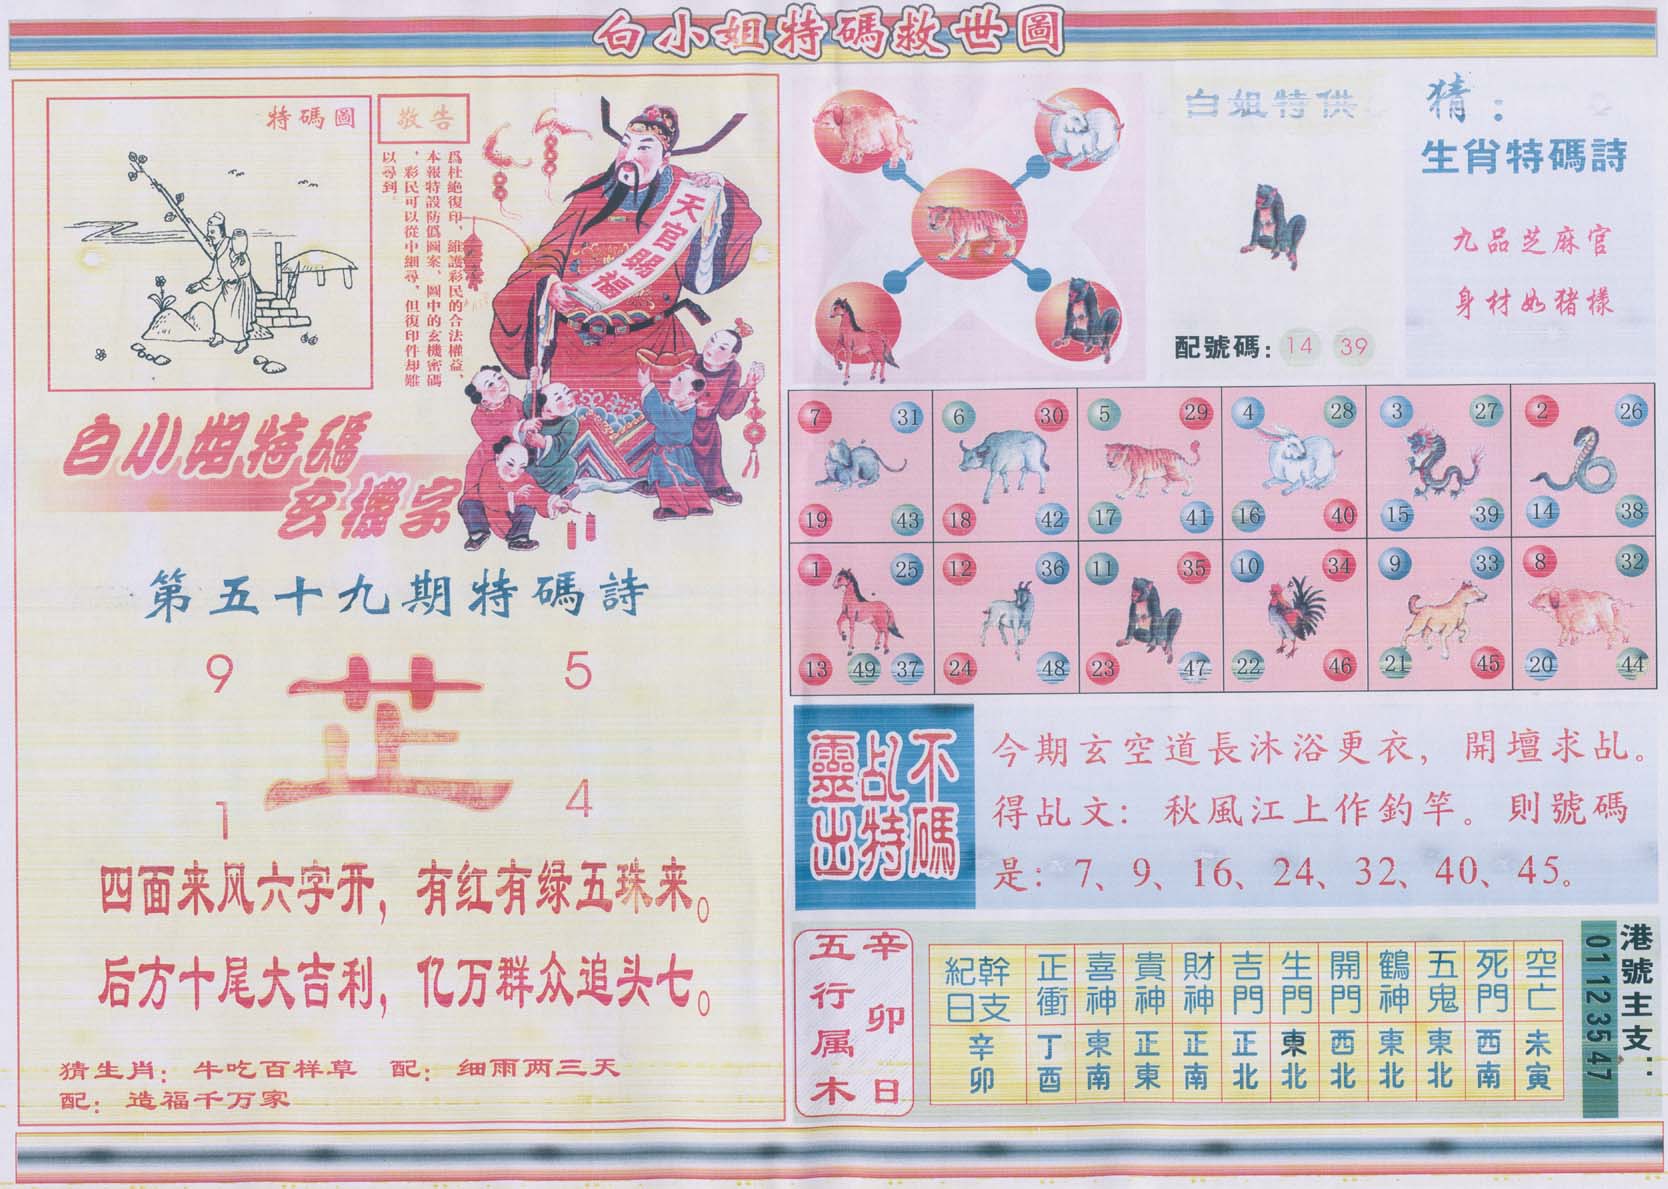 白小姐特碼救世圖
特碼圖
敬告
爲杜絶復印，維護彩民的合法權益，
本報特設防僞圖案，圖中的玄機密碼
，彩民可以從中細尋，但復印件却難
以尋到。
天官賜福
白小姐特碼
玄機字
第五十九期特碼詩
9 5
芷
1 4
四面来风六字开，有红有绿五珠来。
后方十尾大吉利，亿万群众追头七。
猜生肖：牛吃百样草 配：细雨两三天
配：造福千万家
白姐特供
配號碼：14 39
猜：
生肖特碼詩
九品芝麻官
身材如豬樣
7 31 6 30 5 29 4 28 3 27 2 26
19 43 18 42 17 41 16 40 15 39 14 38
1 25 12 36 11 35 10 34 9 33 8 32
13 49 37 24 48 23 47 22 46 21 45 20 44
不碼
乩特
靈出
今期玄空道長沐浴更衣，開壇求乩。
得乩文：秋風江上作釣竿。則號碼
是：7、9、16、24、32、40、45。
辛卯日
五行属木
紀日 幹支 正衝 喜神 貴神 財神 吉門 生門 開門 鶴神 五鬼 死門 空亡
辛卯 丁酉 東南 正東 正南 正北 東北 西北 東北 東北 西南 未寅
港號主支：
01 12 35 47